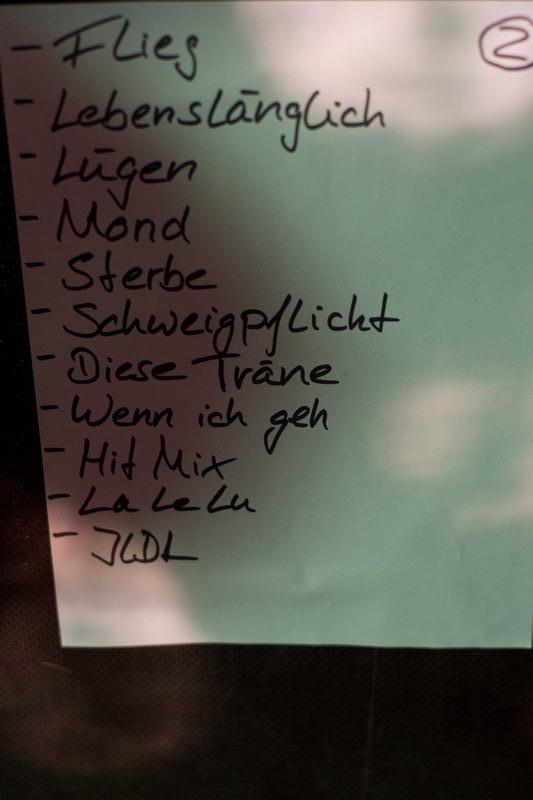 - Flieg ②
- Lebenslänglich
- Lügen
- Mond
- Sterbe
- Schweigpflicht
- Diese Träne
- Wenn ich geh
- Hit Mix
- La Le Lu